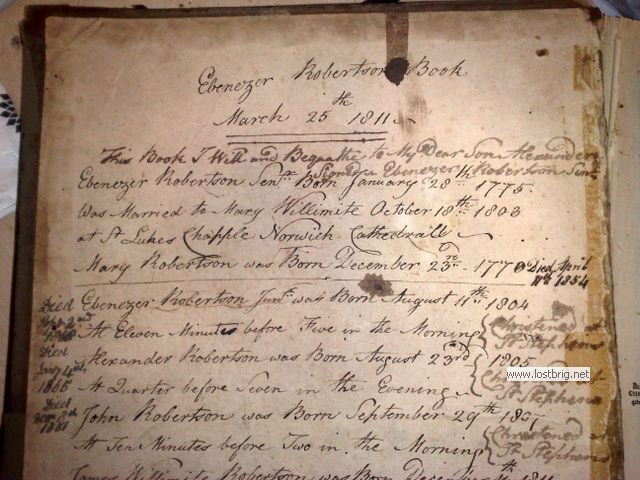 Ebenezer Robertson Book
March 25th 1811
This Book I Will and Bequathe to My Dear Son Alexander
Signed Ebenezer Robertson Senr.
Ebenezer Robertson Senr. Born January 28th 1775
Was Married to Mary Willimite October 18th 1803
at St Lukes Chapple Norwich Cathedrall
Mary Robertson was Born December 23rd 177
Died April
11th 1854
Ebenezer Robertson Junr. was Born August 11th 1804
Died
2nd
At Eleven Minutes before Five in the Morning
Christened at
St Stephens
Died
1866
Alexander Robertson was Born August 23rd 1805
At Quarter before Seven in the Evening
St Stephens
www.lostbrig.net
Died
1881
John Robertson was Born September 29th 1807
At Ten Minutes before Two in the Morning
Christened at
St Stephens
James Willimite Robertson was Born December